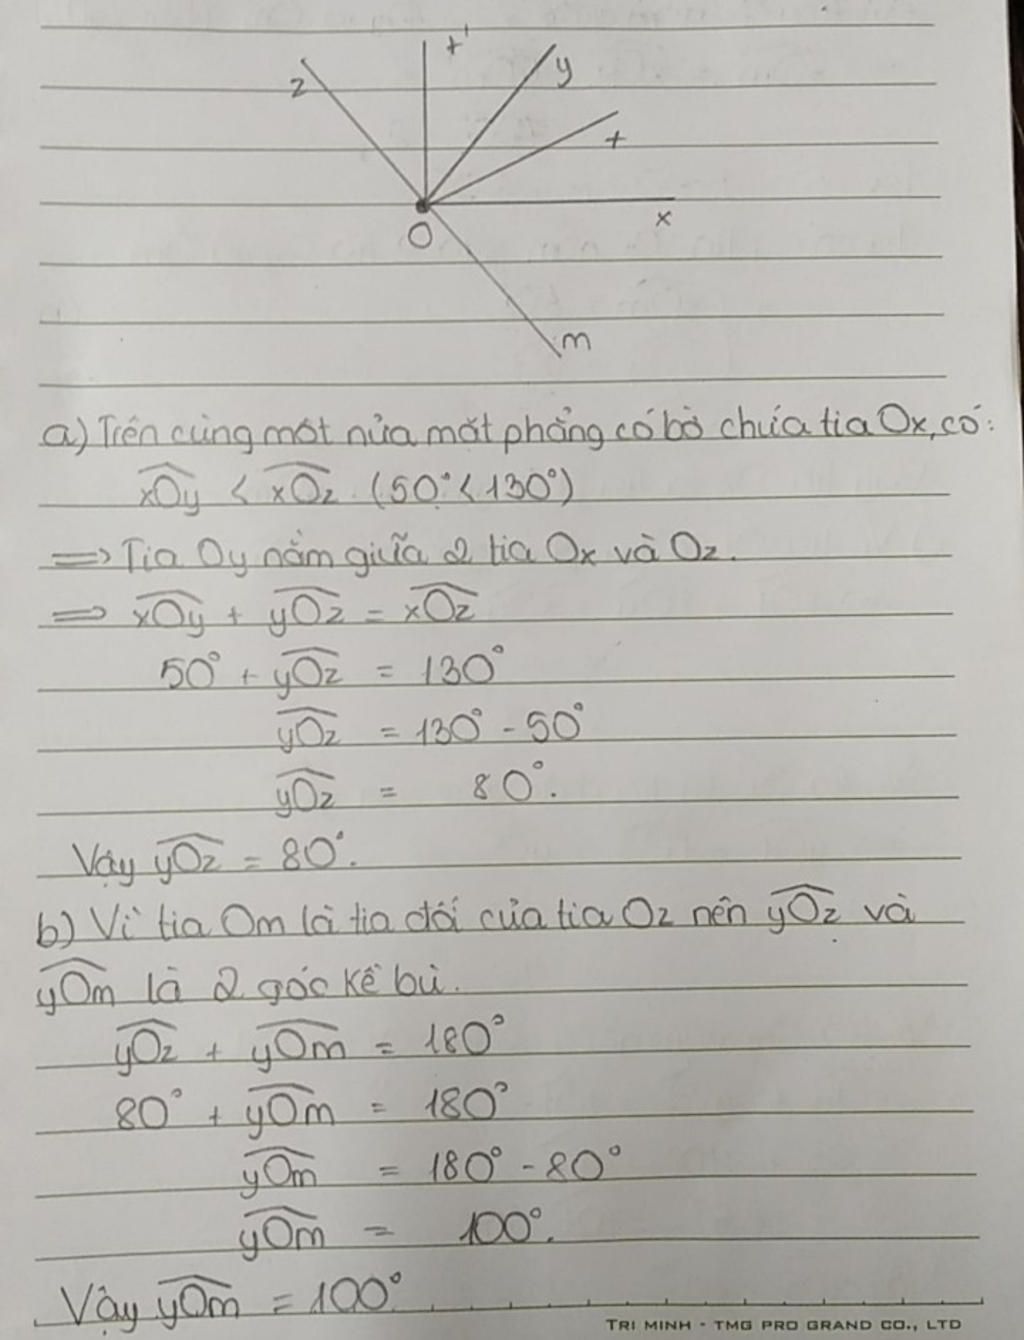 t'
z
y
t
x
O
m
a) Trên cùng một nửa mặt phẳng có bờ chứa tia Ox, có:
xOy < xOz (50° < 130°)
=> Tia Oy nằm giữa 2 tia Ox và Oz.
=> xOy + yOz = xOz
50° + yOz = 130°
yOz = 130° - 50°
yOz = 80°.
Vậy yOz = 80°.
b) Vì tia Om là tia đối của tia Oz nên yOz và
yOm là 2 góc kề bù.
yOz + yOm = 180°
80° + yOm = 180°
yOm = 180° - 80°
yOm = 100°.
Vậy yOm = 100°
TRI MINH - TMG PRO GRAND CO., LTD